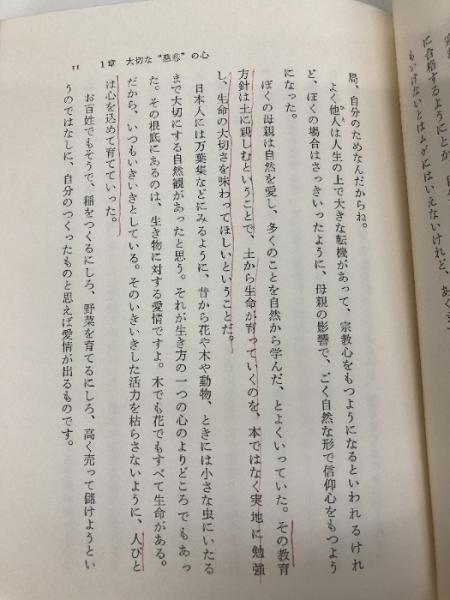 に合格するようにとか、
11　1章　大切な“慈悲”の心
局、自分のためなんだからね。
よく他人は人生の上で大きな転機があって、宗教心をもつようになるといわれるけれ
ど、ぼくの場合はさっきいったように、母親の影響で、ごく自然な形で信仰心をもつよう
になった。
ぼくの母親は自然を愛し、多くのことを自然から学んだ、とよくいっていた。その教育
方針は土に親しむということで、土から生命が育っていくのを、本ではなく実地に勉強
し、生命の大切さを味わってほしいということだ。
日本人には万葉集などにみるように、昔から花や木や動物、ときには小さな虫にいたる
まで大切にする自然観があったと思う。それが生き方の一つの心のよりどころでもあっ
た。その根底にあるのは、生き物に対する愛情ですよ。木でも花でもすべて生命がある。
だから、いつもいきいきとしている。そのいきいきした活力を枯らさないように、人びと
は心を込めて育てていった。
お百姓でもそうで、稲をつくるにしろ、野菜を育てるにしろ、高く売って儲けようとい
うのではなしに、自分のつくったものと思えば愛情が出るものです。